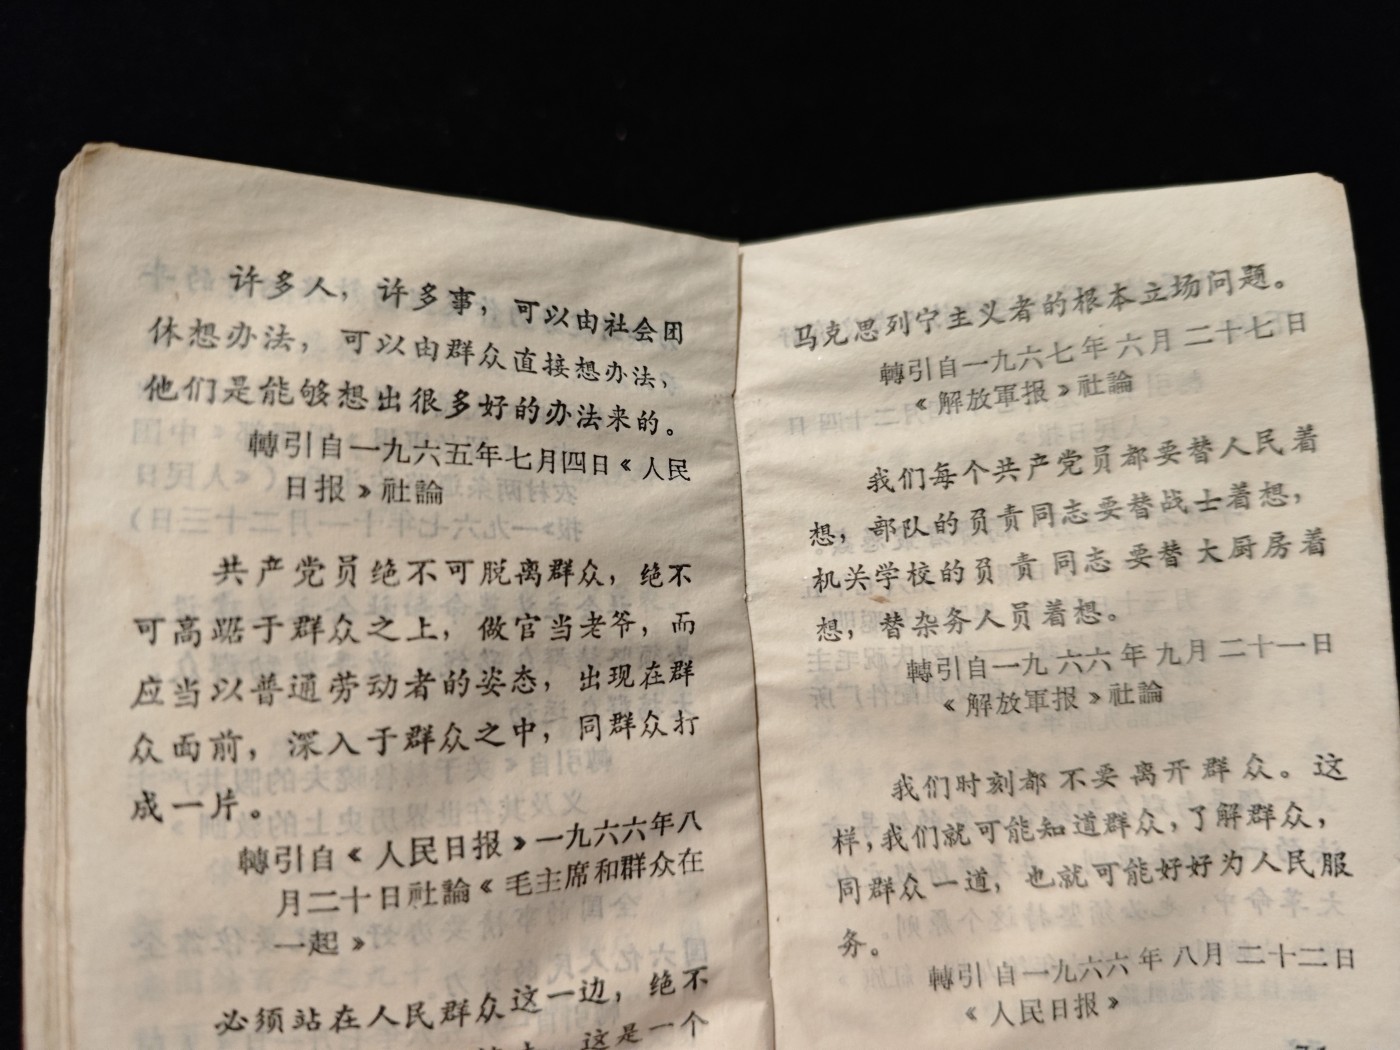 许多人，许多事，可以由社会团
休想办法，可以由群众直接想办法，
他们是能够想出很多好的办法来的。
轉引自一九六五年七月四日《人民
日报》社論
共产党员绝不可脱离群众，绝不
可高踞于群众之上，做官当老爷，而
应当以普通劳动者的姿态，出现在群
众面前，深入于群众之中，同群众打
成一片。
轉引自《人民日报》一九六六年八
月二十日社論《毛主席和群众在
一起》
必须站在人民群众这一边，绝不
这是一个
马克思列宁主义者的根本立场问题。
轉引自一九六七年六月二十七日
《解放軍报》社論
我们每个共产党员都要替人民着
想，部队的负责同志要替战士着想，
机关学校的负责同志要替大厨房着
想，替杂务人员着想。
轉引自一九六六年九月二十一日
《解放軍报》社論
我们时刻都不要离开群众。这
样，我们就可能知道群众，了解群众，
同群众一道，也就可能好好为人民服
务。
轉引自一九六六年八月二十二日
《人民日报》